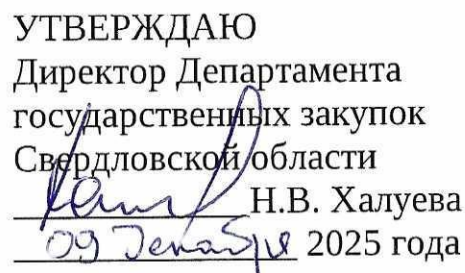 УТВЕРЖДАЮ
Директор Департамента
государственных закупок
Свердловской области
Н.В. Халуева
09 Декабря 2025 года